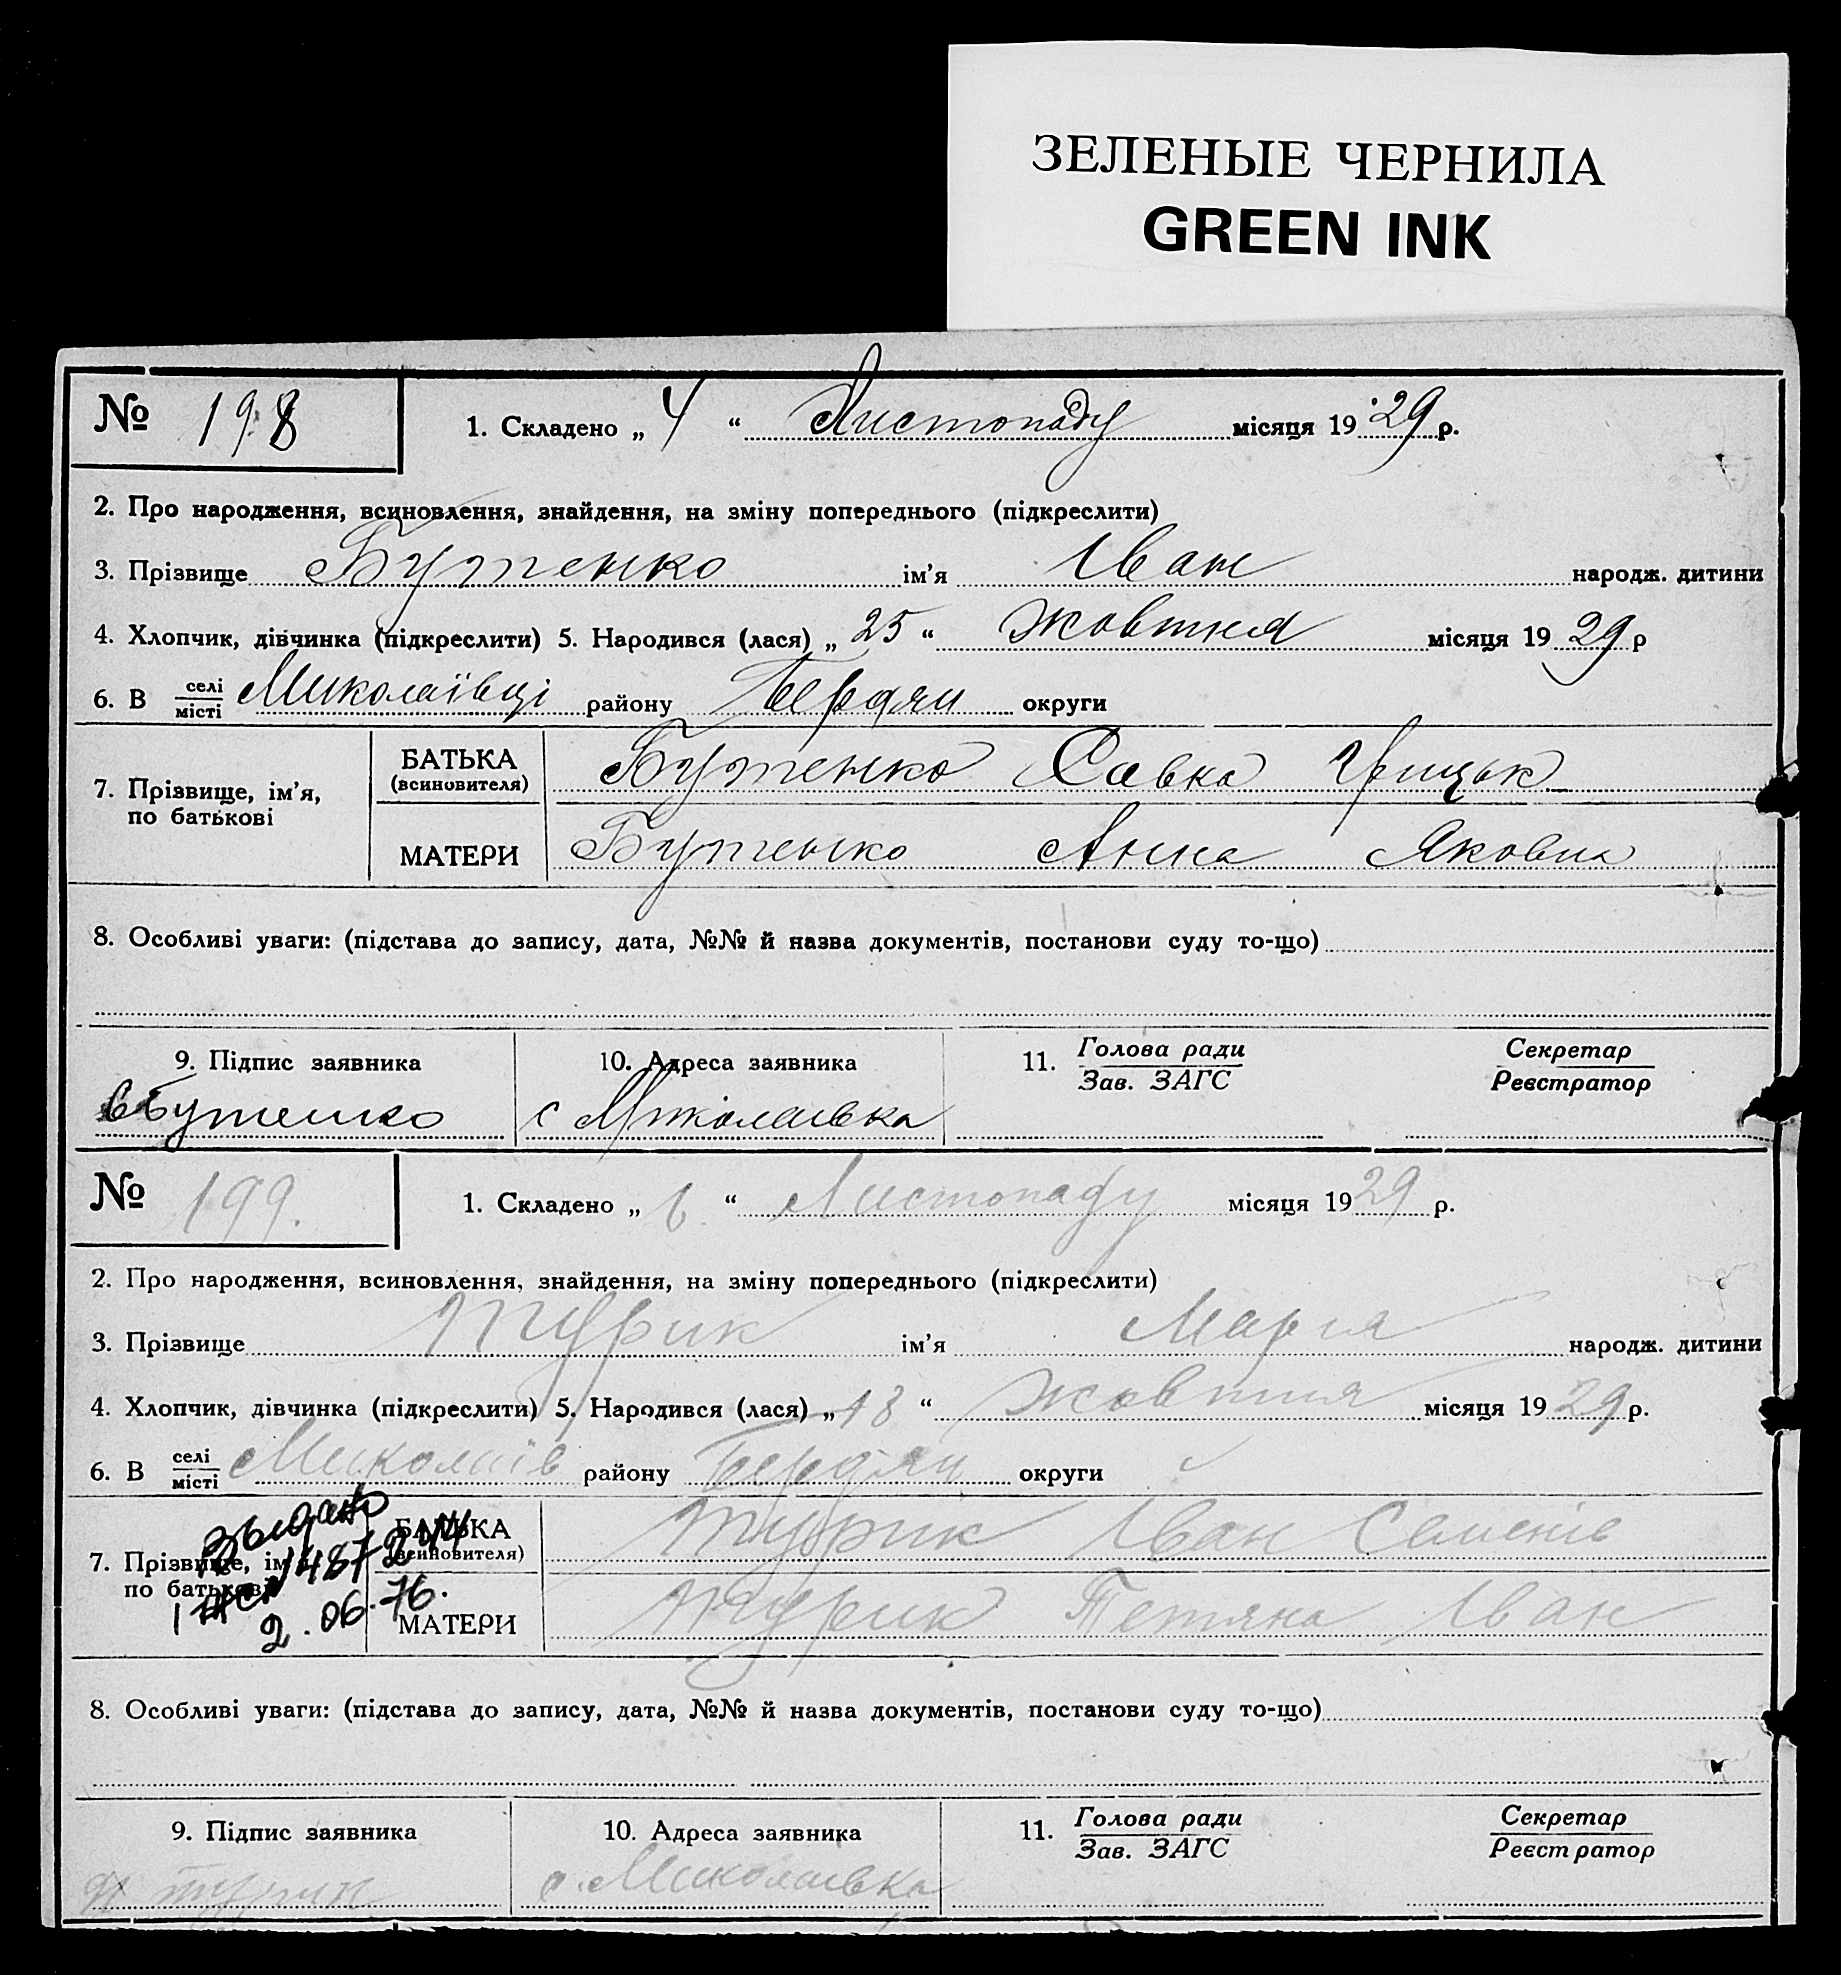 ЗЕЛЕНЫЕ ЧЕРНИЛА
GREEN INK
№ 198 1. Складено „ 4 “ Листопаду місяця 1929 р.
2. Про народження, всиновлення, знайдення, на зміну попереднього (підкреслити)
3. Прізвище Бутенко ім’я Іван народж. дитини
4. Хлопчик, дівчинка (підкреслити) 5. Народився (лася) „ 25 “ Жовтня місяця 1929 р
6. В селі/місті Миколаївці району Бердян округи
7. Прізвище, ім’я, по батькові
БАТЬКА (всиновителя) Бутенко Савка Грицьк
МАТЕРИ Бутенко Анна Яковна
8. Особливі уваги: (підстава до запису, дата, №№ й назва документів, постанови суду то-що)
9. Підпис заявника 10. Адреса заявника 11. Голова ради/Зав. ЗАГС Секретар/Реєстратор
Бутенко с Миколаівка
№ 199. 1. Складено „ 6 “ Листопаду місяця 1929 р.
2. Про народження, всиновлення, знайдення, на зміну попереднього (підкреслити)
3. Прізвище Турик ім’я Мария народж. дитини
4. Хлопчик, дівчинка (підкреслити) 5. Народився (лася) „ 18 “ Жовтня місяця 1929 р.
6. В селі/місті Миколаїв району Бердян округи
7. Прізвище, ім’я, по батькові
487244
2.06.76.
БАТЬКА (всиновителя) Турик Іван Семенів
МАТЕРИ Турик Тетяна Іван
8. Особливі уваги: (підстава до запису, дата, №№ й назва документів, постанови суду то-що)
9. Підпис заявника 10. Адреса заявника 11. Голова ради/Зав. ЗАГС Секретар/Реєстратор
Турик с. Миколаівка